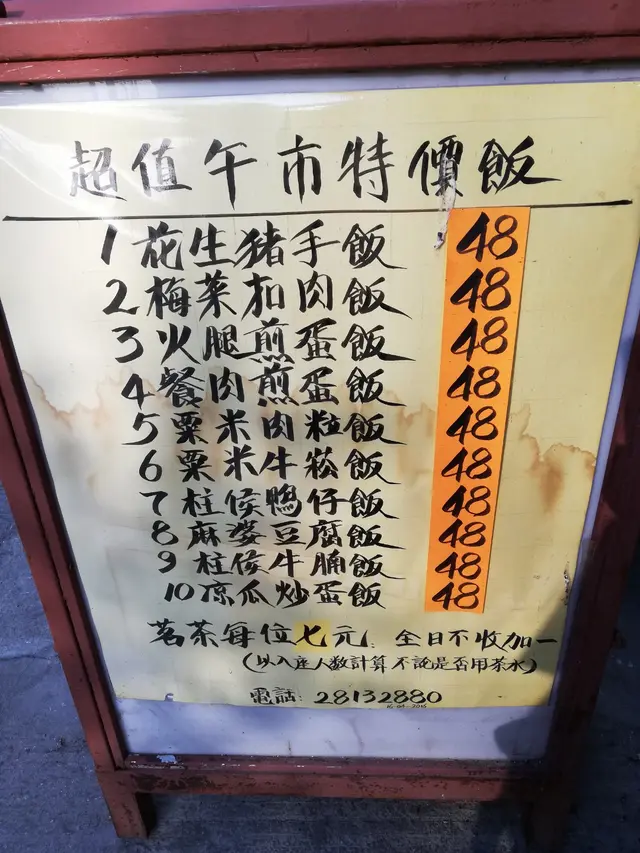 超值午市特價飯
1 花生猪手飯 48
2 梅菜扣肉飯 48
3 火腿煎蛋飯 48
4 餐肉煎蛋飯 48
5 粟米肉粒飯 48
6 粟米牛崧飯 48
7 柱侯鴨仔飯 48
8 麻婆豆腐飯 48
9 柱侯牛腩飯 48
10 凉瓜炒蛋飯 48
茗茶每位七元 全日不收加一
(以入座人數計算 不説是否用茶水)
電話: 28132880
16-04-2015